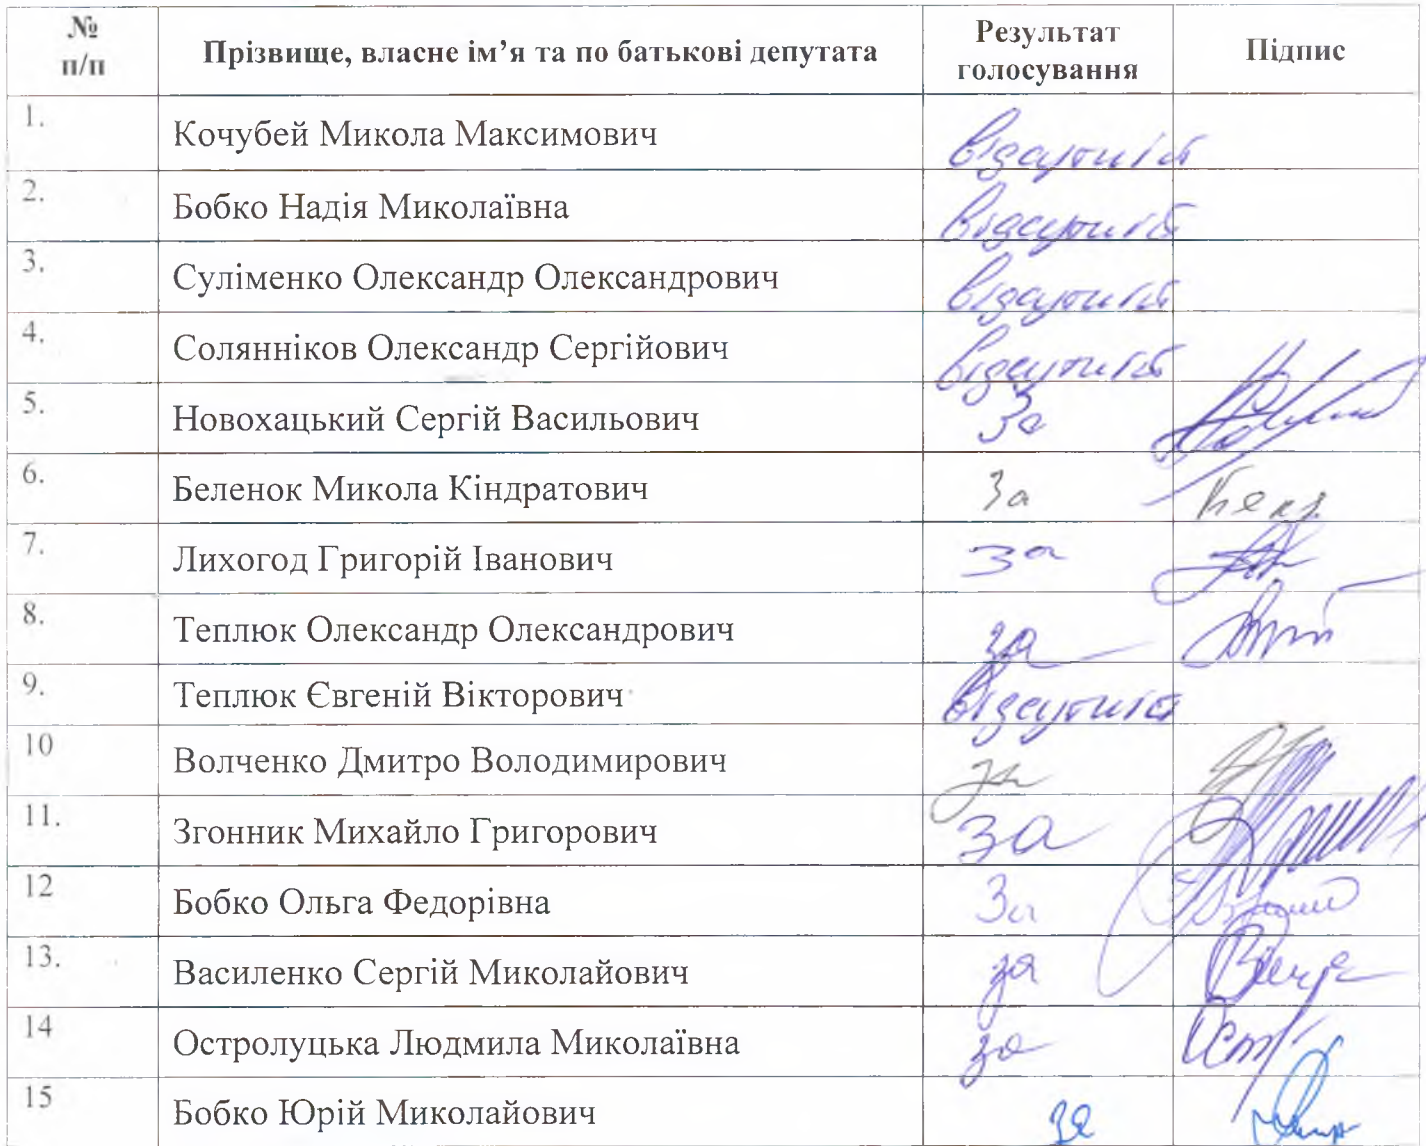 № п/п Прізвище, власне ім’я та по батькові депутата Результат голосування Підпис
1. Кочубей Микола Максимович відсутній
2. Бобко Надія Миколаївна відсутній
3. Суліменко Олександр Олександрович відсутній
4. Солянніков Олександр Сергійович відсутній
5. Новохацький Сергій Васильович За
6. Беленок Микола Кіндратович За
7. Лихогод Григорій Іванович за
8. Теплюк Олександр Олександрович за
9. Теплюк Євгеній Вікторович відсутній
10 Волченко Дмитро Володимирович за
11. Згонник Михайло Григорович за
12 Бобко Ольга Федорівна За
13. Василенко Сергій Миколайович за
14 Остролуцька Людмила Миколаївна за
15 Бобко Юрій Миколайович за